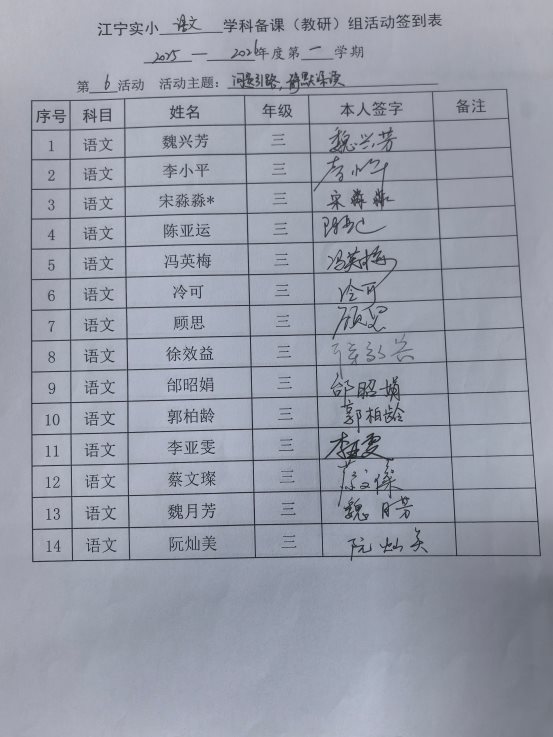 江宁实小 语文 学科备课（教研）组活动签到表
2025 — 2026 年度第 一 学期
第 6 活动 活动主题：问题引路，静默深读
序号 科目 姓名 年级 本人签字 备注
1 语文 魏兴芳 三 魏兴芳
2 语文 李小平 三 李小平
3 语文 宋淼淼* 三 宋淼淼
4 语文 陈亚运 三
5 语文 冯英梅 三 冯英梅
6 语文 冷可 三 冷可
7 语文 顾思 三 顾思
8 语文 徐效益 三 徐效益
9 语文 邰昭娟 三 邰昭娟
10 语文 郭柏龄 三 郭柏龄
11 语文 李亚雯 三 李亚雯
12 语文 蔡文璨 三 蔡文璨
13 语文 魏月芳 三 魏月芳
14 语文 阮灿美 三 阮灿美